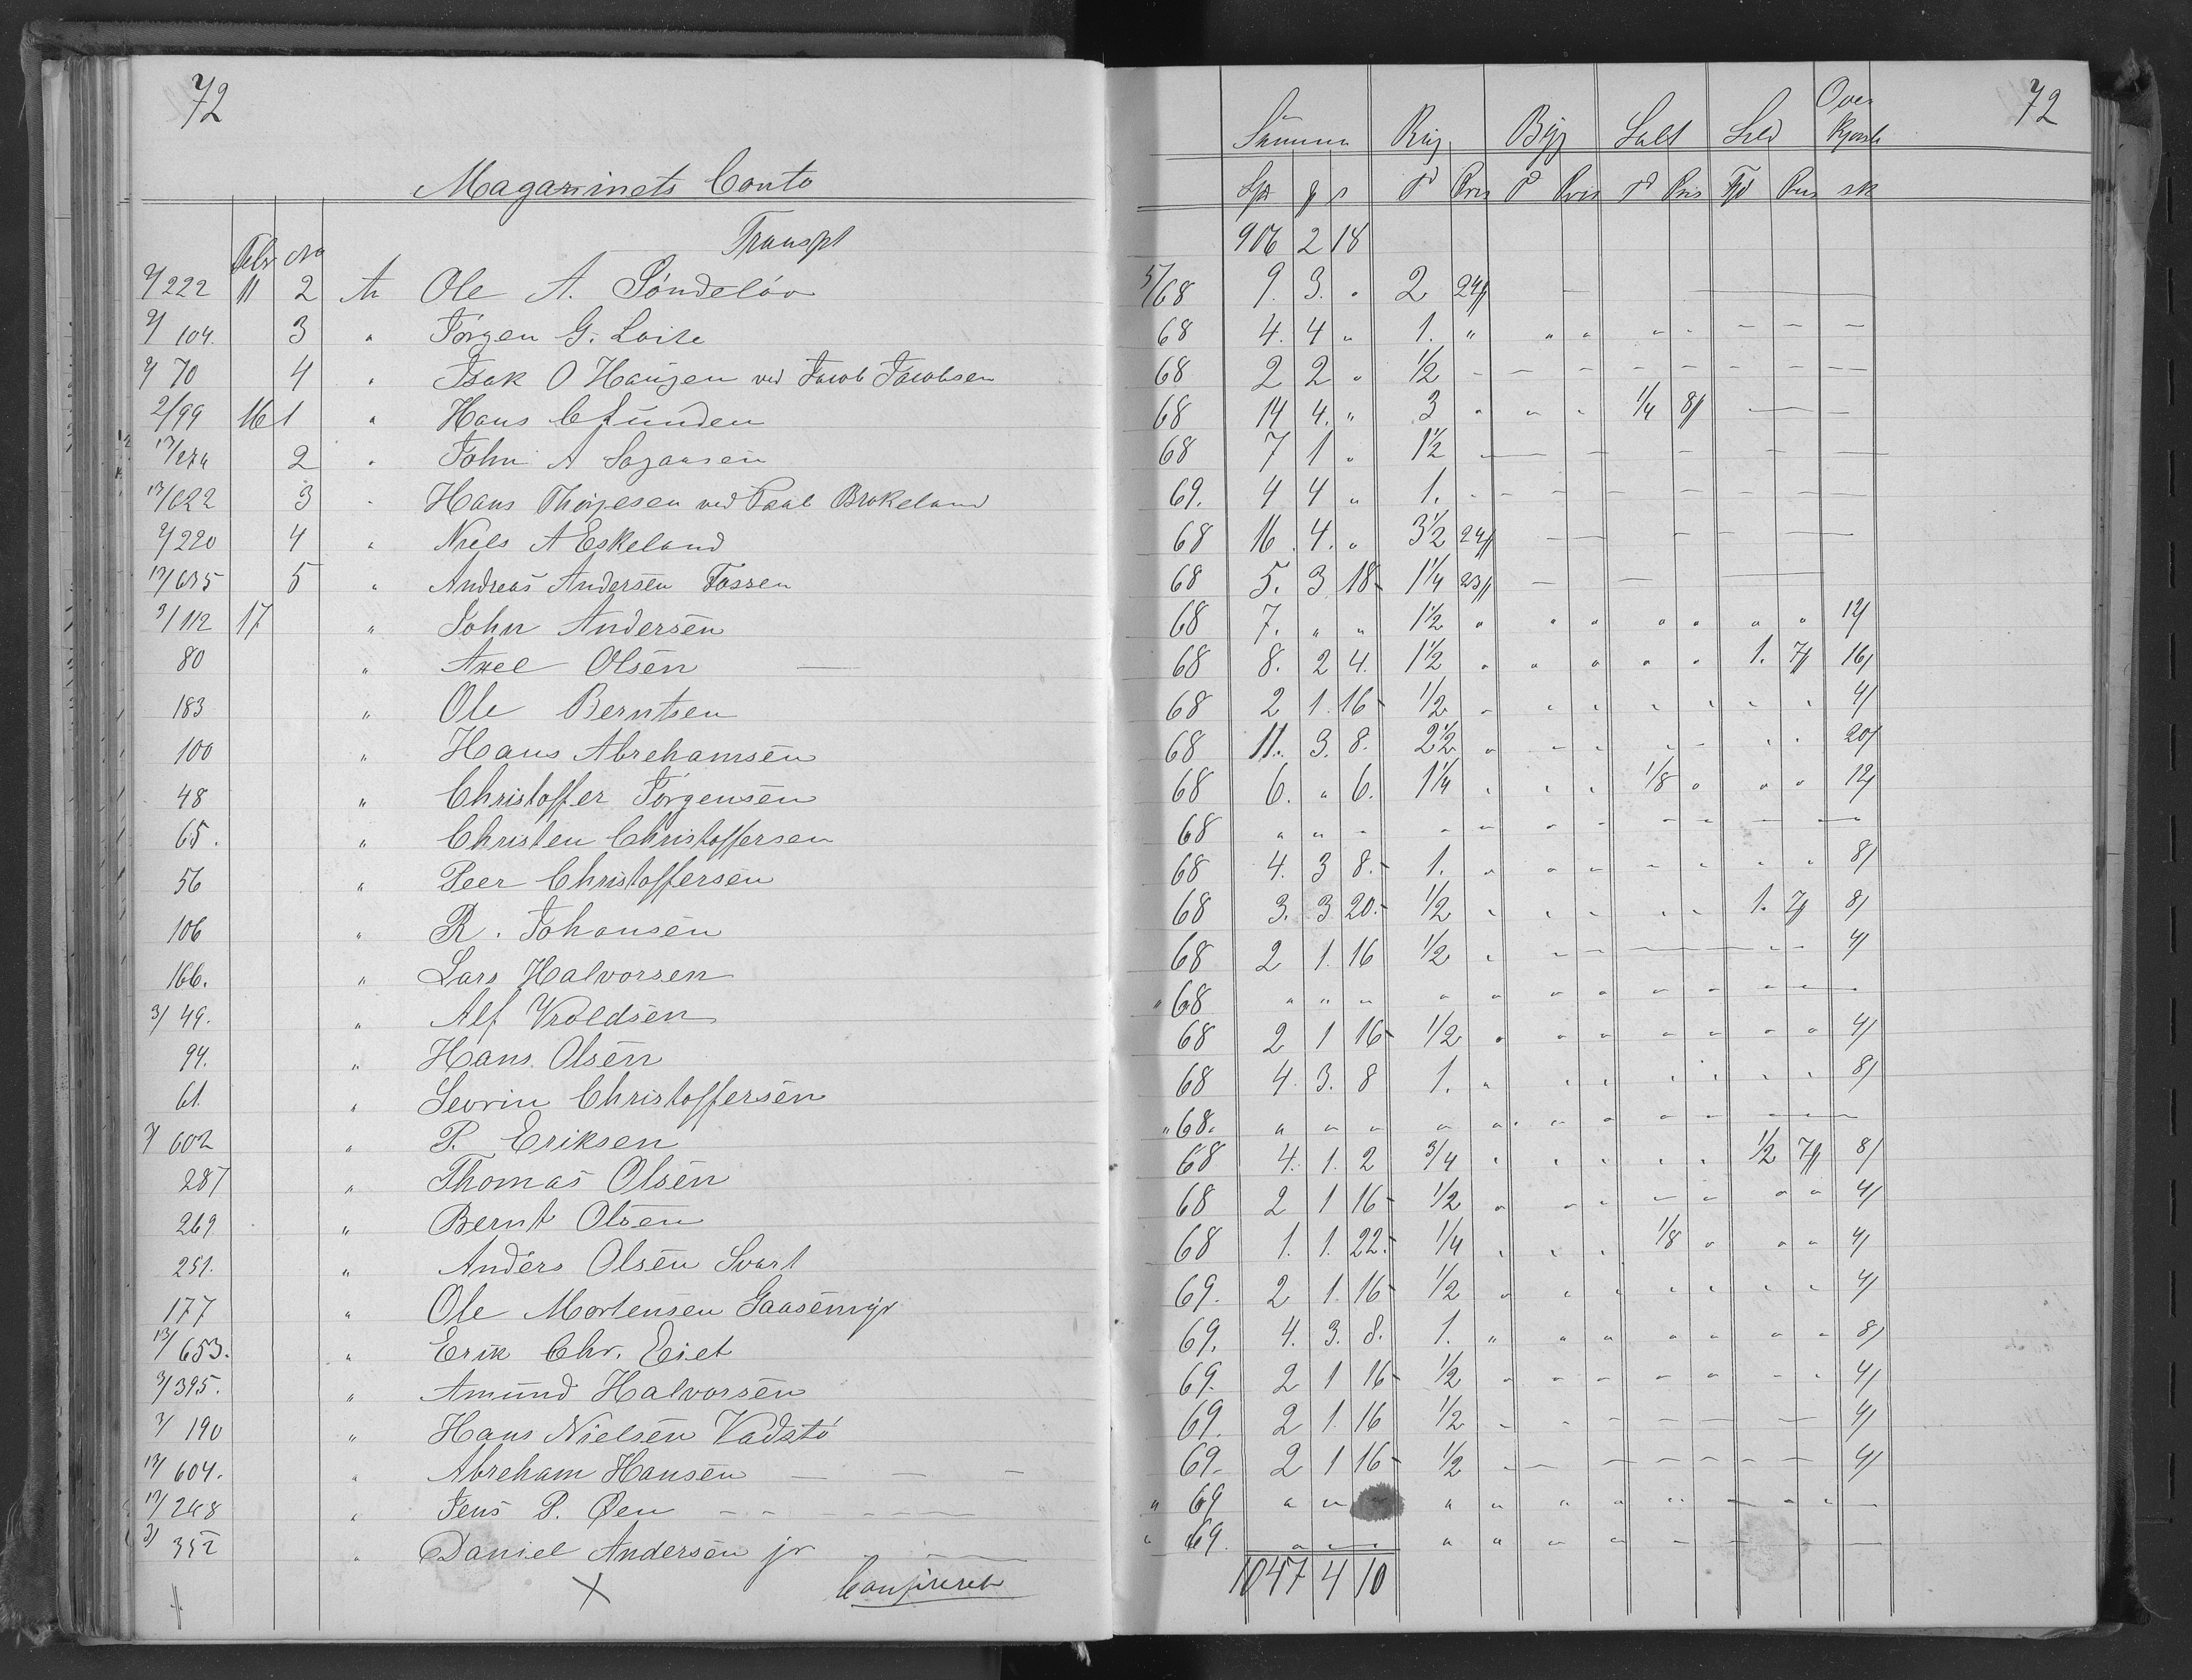 72
72
Magazinets Conto
Summa Rug Byg Salt Sild Over
Spd Pris Pris Pris Pris sk
Febr No Transpt 906 2 18
2/222 11 2 An Ole A. Söndelöv 5/68 9. 3. " 2 24/
2/104. 3 " Jörgen G. Loite 68 4. 4 " 1. " " " " " — — —
2/70 4 " Isak O Haugen ved Jacob Jacobsen 68 2 2 " 1/2 — — — — — — — —
2/99 16 1 " Hans C Lunden 68 14 4. " 3 " " " 1/4 8/ — —
13/274 2 " John A Sagaasen 68 7 1 " 1 1/2 — — — — —
13/622 3 " Hans Thorjesen ved Paal Brokeland 69. 4 4 " 1. — — — — — — — —
2/220 4 " Niels A Eskeland 68 16. 4. " 3 1/2 24/ — — — — —
13/635 5 " Andreas Andersen Fossen 68 5. 3 18 1 1/4 23/ — — —
3/112 17 " John Andersen 68 7. " " 1 1/2 " " " " " " " 12/
80 " Axel Olsen — 68 8. 2 4. 1 1/2 " " " " " 1. 7/ 16/
183 " Ole Berntsen 68 2 1 16 1/2 " " " " " " " 4/
100 " Hans Abrehamsen 68 11. 3. 8. 2 1/2 " " " " " " " 20/
48 " Christoffer Jörgensen 68 6. " 6. 1 1/4 " " " 1/8 " " " 12/
65. " Christen Christoffersen 68 " " " " " " " " " — —
56 " Peer Christoffersen 68 4. 3 8. 1. " " " " " " " 8/
106 " R. Johansen 68 3. 3 20. 1/2 " " " " " 1. 7/ 8/
166. " Lars Halvorsen 68 2 1. 16 1/2 " " " — " " 4/
3/49. " Alf Vroldsen " 68 " " " " " " " " " " " "
94. " Hans Olsen 68 2 1 16 1/2 " " " " " " " 4/
61. " Sevrin Christoffersen 68 4. 3. 8 1. " " " " " " " 8/
7/602 " P. Eriksen " 68. " " " " " " " " " " " "
287 " Thomas Olsen 68 4. 1. 2 3/4 " " " " " 1/2 7/ 8/
269 " Bernt Olsen 68 2 1 16 1/2 " " " " " " " 4/
251. " Anders Olsen Svart 68 1. 1. 22. 1/4 " " " 1/8 " " " 4/
177 " Ole Mortensen Gaasemyr 69. 2 1. 16 1/2 " " " " " " " 4/
13/653. " Erik Chr. Eiet 69. 4. 3. 8. 1. " " " " " " " 8/
3/395. " Amund Halvorsen 69. 2 1 16 1/2 " " " " " " " 4/
3/190 " Hans Nielsen Vadstö 69. 2 1. 16 1/2 " " " — — — 4/
13/604. " Abreham Hansen — — — 69. 2 1 16 1/2 — — — — — — — 4/
13/248 " Jens P. Øen — — — " 69 " " " " " " " " " " —
3/352 " Daniel Andersen jr — " 69. " " " " " " " — — — —
X Confereret 1047 4 10